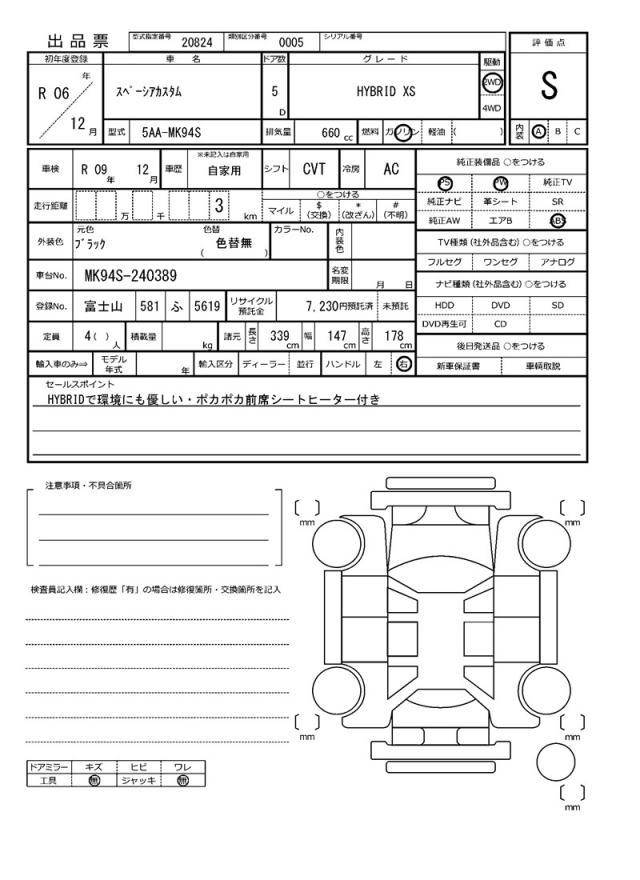 出品票 型式指定番号 20824 類別区分番号 0005 シリアル番号
評価点
S
内装 A B C
初年度登録 車名 ドア数 グレード 駆動
R 06 年 12 月 スペーシアカスタム 5 D HYBRID XS 2WD 4WD
型式 5AA-MK94S 排気量 660 cc 燃料 ガソリン 軽油 ( )
車検 R 09 年 12 月 車歴 ※未記入は自家用 自家用 シフト CVT 冷房 AC
走行距離 万 千 3 km ○をつける マイル $(交換) *(改ざん) #(不明)
外装色 元色 ブラック 色替 色替無 ( ) カラーNo. 内装色
車台No. MK94S-240389 名変期限 月 日
登録No. 富士山 581 ふ 5619 リサイクル預託金 7,230円預託済 未預託
定員 4( ) 人 積載量 kg 諸元 長さ 339 cm 幅 147 cm 高さ 178 cm
輸入車のみ⇒ モデル年式 年 輸入区分 ディーラー 並行 ハンドル 左 右
純正装備品 ○をつける
PS PW 純正TV
純正ナビ 革シート SR
純正AW エアB ABS
TV種類(社外品含む)○をつける
フルセグ ワンセグ アナログ
ナビ種類(社外品含む)○をつける
HDD DVD SD
DVD再生可 CD
後日発送品 ○をつける
新車保証書 車輌取説
セールスポイント
HYBRIDで環境にも優しい・ポカポカ前席シートヒーター付き
注意事項・不具合箇所
検査員記入欄：修復歴「有」の場合は修復箇所・交換箇所を記入
mm
mm
mm
mm
mm
ドアミラー キズ ヒビ ワレ
工具 無 ジャッキ 無